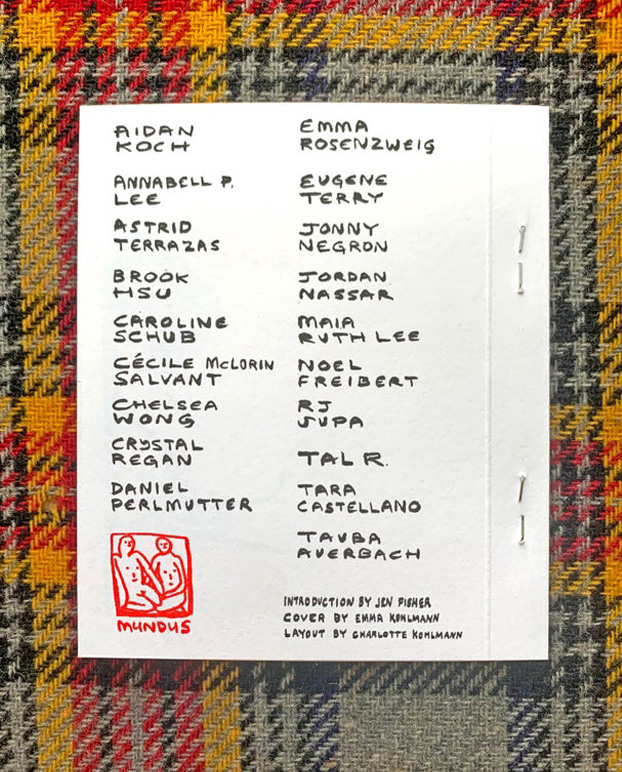 AIDAN
KOCH
ANNABELL P.
LEE
ASTRID
TERRAZAS
BROOK
HSU
CAROLINE
SCHUB
CÉCILE McLORIN
SALVANT
CHELSEA
WONG
CRYSTAL
REGAN
DANIEL
PERLMUTTER
EMMA
ROSENZWEIG
EUGENE
TERRY
JONNY
NEGRON
JORDAN
NASSAR
MAIA
RUTH LEE
NOEL
FREIBERT
RJ
SUPA
TAL R.
TARA
CASTELLANO
TAUBA
AUERBACH
MUNDUS
INTRODUCTION BY JEN FISHER
COVER BY EMMA KOHLMANN
LAYOUT BY CHARLOTTE KOHLMANN